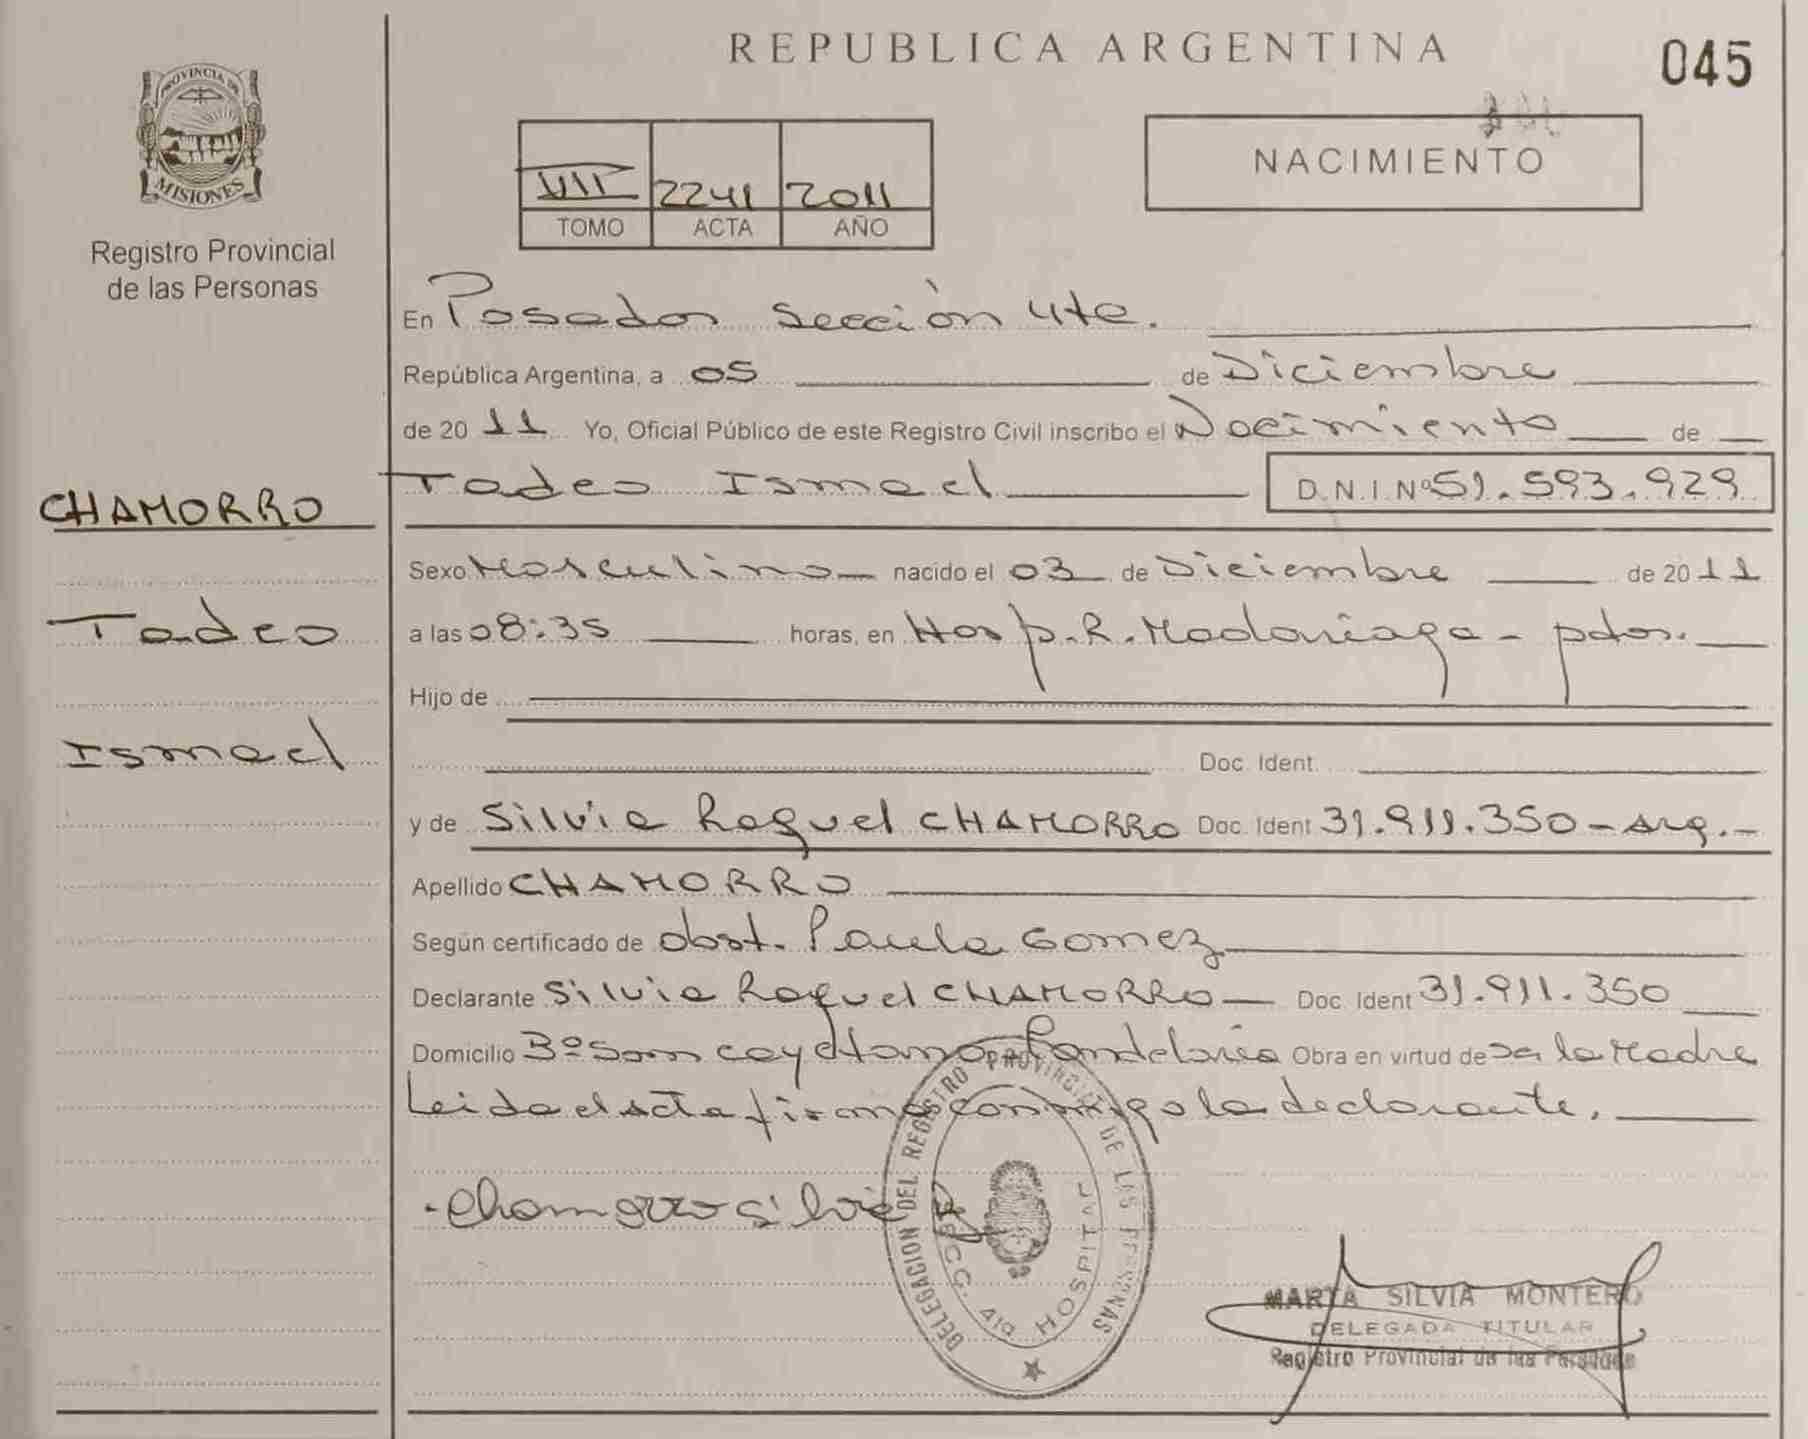 REPUBLICA ARGENTINA
045
PROVINCIA DE
MISIONES
Registro Provincial
de las Personas
VII 2241 2011
TOMO ACTA AÑO
NACIMIENTO
En Posadas Sección 4ta.
República Argentina, a 05 de Diciembre
de 20 11 Yo, Oficial Público de este Registro Civil inscribo el Nacimiento de
Tadeo Ismael D.N.I Nº 51.593.929
CHAMORRO
Tadeo
Ismael
Sexo Masculino nacido el 03 de Diciembre de 20 11
a las 08:35 horas, en Hosp. R. Madariaga - pdas.
Hijo de
Doc. Ident.
y de Silvia Raquel CHAMORRO Doc. Ident 31.911.350 - Arg. -
Apellido CHAMORRO
Según certificado de obst. Paula Gomez
Declarante Silvia Raquel CHAMORRO Doc. Ident 31.911.350
Domicilio Bº San Cayetano Candelaria Obra en virtud de ser la Madre
Leida el acta firma conmigo la declarante.
Chamorro Silvia R
DELEGACION DEL REGISTRO PROVINCIAL DE LAS PERSONAS
SECC. 4ta HOSPITAL
MARTA SILVIA MONTERO
DELEGADA TITULAR
Registro Provincial de las Personas